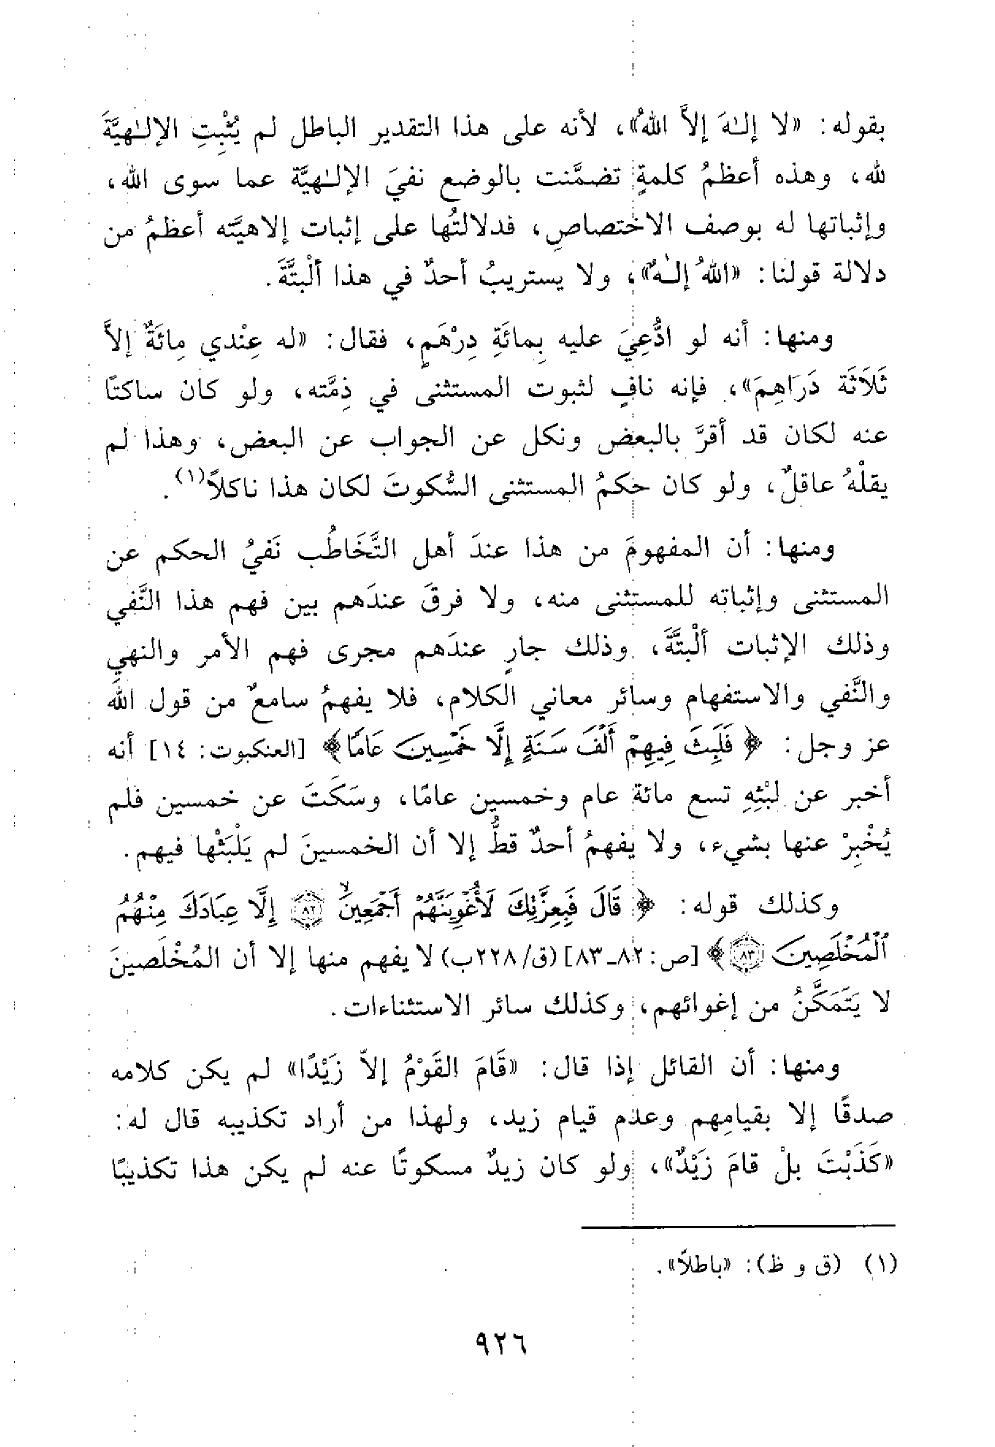 بقوله: «لا إلـٰهَ إلاَّ اللهُ»، لأنه على هذا التقدير الباطل لم يُثْبِتِ الإلـٰهيَّةَ
لله، وهذه أعظمُ كلمةٍ تضمَّنت بالوضع نفيَ الإلـٰهيَّة عما سوى الله،
وإثباتها له بوصف الاختصاصِ، فدلالتُها على إثبات إلاهيَّته أعظمُ من
دلالة قولنا: «اللهُ إلـٰهٌ»، ولا يستريبُ أحدٌ في هذا ألْبتَّةَ.
ومنها: أنه لو ادُّعِيَ عليه بِمائَةِ دِرْهَمٍ، فقال: «له عِنْدي مِائَةٌ إلاَّ
ثَلَاثَة دَرَاهِمَ»، فإنه نافٍ لثبوت المستثنى في ذِمَّته، ولو كان ساكتًا
عنه لكان قد أقرَّ بالبعض ونكل عن الجواب عن البعض، وهذا لم
يقلْهُ عاقلٌ، ولو كان حكمُ المستثنى السُّكوتَ لكان هذا ناكلاً(١).
ومنها: أن المفهومَ من هذا عندَ أهل التَّخَاطُب نَفيُ الحكم عن
المستثنى وإثباته للمستثنى منه، ولا فرقَ عندَهم بين فهم هذا النَّفي
وذلك الإثبات ألْبتَّةَ، وذلك جارٍ عندَهم مجرى فهم الأمر والنهي
والنَّفي والاستفهام وسائر معاني الكلام، فلا يفهمُ سامعٌ من قول الله
عز وجل: ﴿فَلَبِثَ فِيهِمْ أَلْفَ سَنَةٍ إِلَّا خَمْسِينَ عَامًا﴾ [العنكبوت: ١٤] أنه
أخبر عن لبْثِهِ تسع مائة عام وخمسين عامًا، وسَكَتَ عن خمسين فلم
يُخْبِرْ عنها بشيء، ولا يفهمُ أحدٌ قطُّ إلا أن الخمسينَ لم يَلْبَثْها فيهم.
وكذلك قوله: ﴿قَالَ فَبِعِزَّتِكَ لَأُغْوِيَنَّهُمْ أَجْمَعِينَ ۝٨٢ إِلَّا عِبَادَكَ مِنْهُمُ
ٱلْمُخْلَصِينَ ۝٨٣﴾ [ص: ٨٢ـ٨٣] (ق/٢٢٨ب) لا يفهم منها إلا أن المُخْلَصينَ
لا يَتَمَكَّنُ من إغوائهم، وكذلك سائر الاستثناءات.
ومنها: أن القائل إذا قال: «قَامَ القَوْمُ إلاّ زَيْدًا» لم يكن كلامه
صدقًا إلا بقيامِهم وعدم قيام زيد، ولهذا من أراد تكذيبه قال له:
«كَذَبْتَ بلْ قامَ زَيْدٌ»، ولو كان زيدٌ مسكوتًا عنه لم يكن هذا تكذيبًا
(١) (ق و ظ): «باطلاً».
٩٢٦